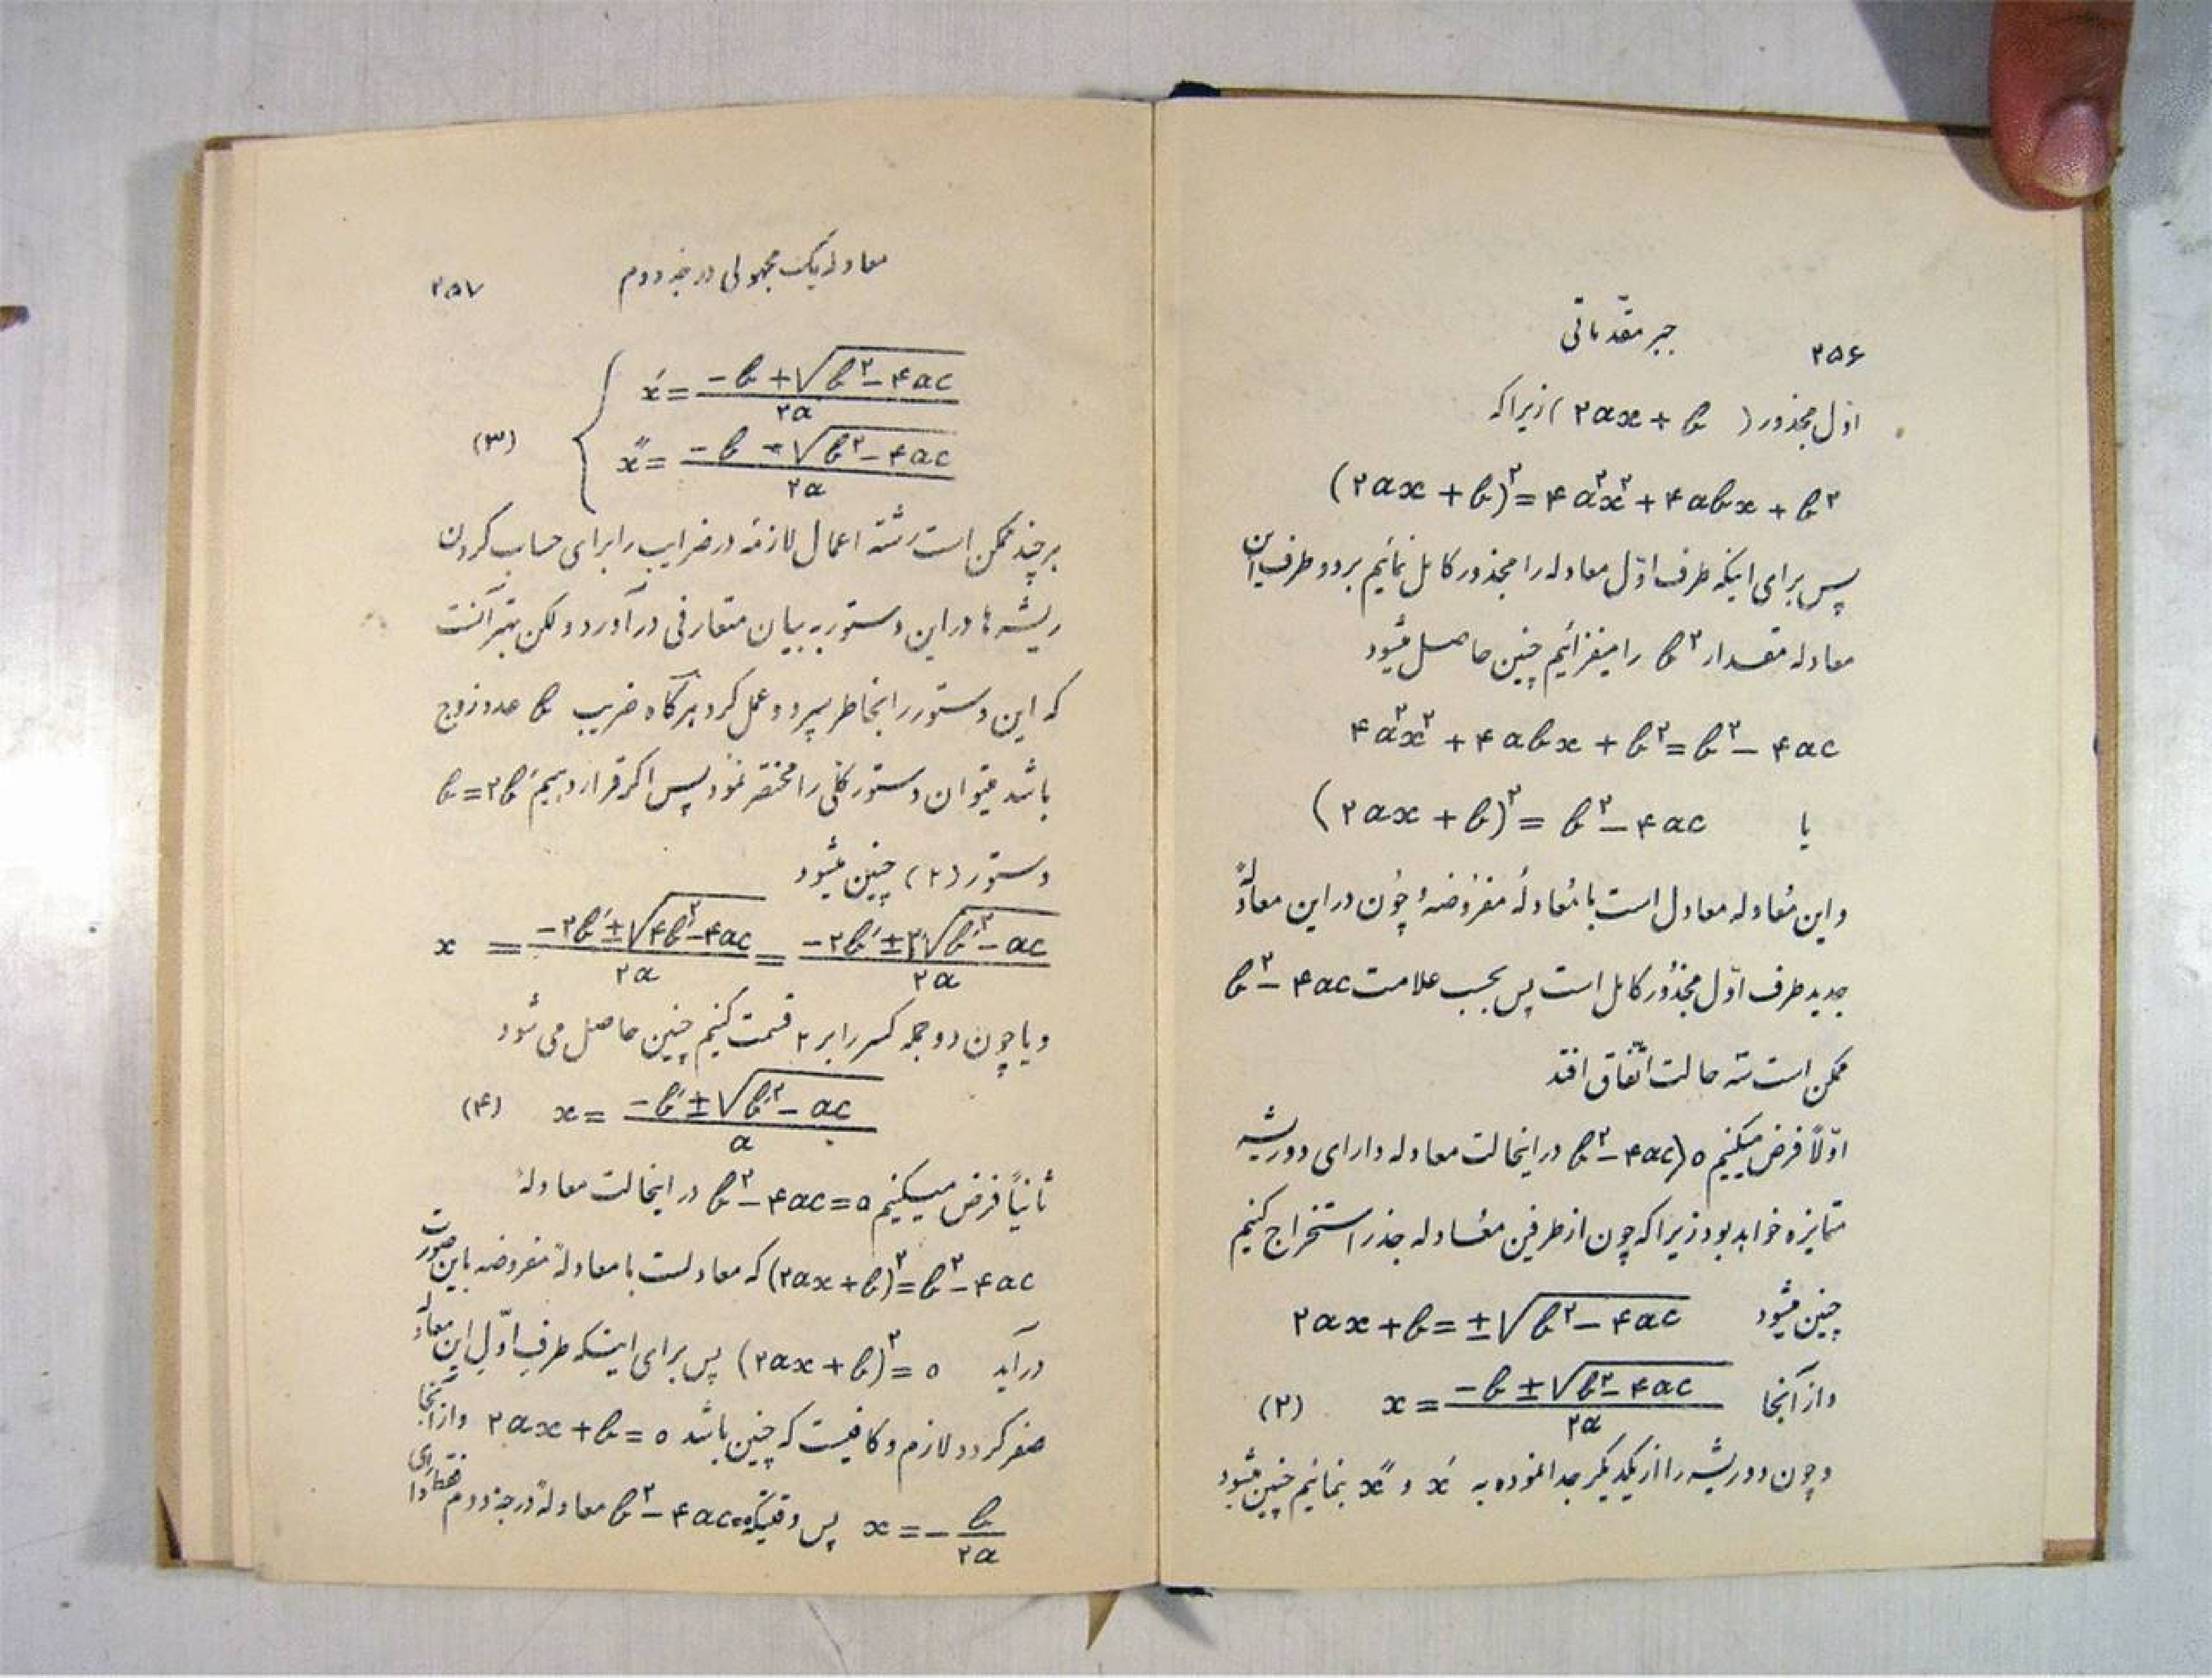 ۲۵۶ جبر مقدماتی
اوّل مجذور (۲ax + b) زیرا که
(۲ax + b)^۲ = ۴a^۲x^۲ + ۴abx + b^۲
پس برای اینکه طرف اوّل معادله را مجذور کامل نمائیم بر دو طرف این
معادله مقدار b^۲ را میفزائیم چنین حاصل میشود
۴a^۲x^۲ + ۴abx + b^۲ = b^۲ - ۴ac
یا (۲ax + b)^۲ = b^۲ - ۴ac
و این مُعادله معادل است با مُعادلهٔ مفروضهٔ چُون در این معادلهٔ
جدید طرف اوّل مجذُور کامل است پس بحسب علامت b^۲ - ۴ac
ممکن است سه حالت اتّفاق افتد
اوّلاً فرض میکنیم b^۲ - ۴ac > ۰ در اینحالت معادله دارای دو ریشه
متمایزه خواهد بود زیرا که چون از طرفین معُادله جذر استخراج کنیم
چنین میشود ۲ax + b = ±√(b^۲ - ۴ac)
و از آنجا x = (-b ± √(b^۲ - ۴ac)) / ۲a (۲)
و چون دو ریشه را از یکدیگر جدا نموده به x′ و x″ بنمائیم چنین میشود
معادله یک مجهولی درجه دوم ۲۵۷
(۳) { x′ = (-b + √(b^۲ - ۴ac)) / ۲a
x″ = (-b - √(b^۲ - ۴ac)) / ۲a
هر چند ممکن است رشته اعمال لازمه در ضرایب را برای حساب کردن
ریشه ها در این دستور به بیان متعارفی در آورد و لکن بهتر آنست
که این دستور را بخاطر سپرد و عمل کرد هر گاه ضریب b عدد زوج
باشد میتوان دستور کلّی را مختصر نمود پس اگر قرار دهیم b = ۲b′
دستور (۲) چنین میشود
x = (-۲b′ ± √(۴b′^۲ - ۴ac)) / ۲a = (-۲b′ ± ۲√(b′^۲ - ac)) / ۲a
و یا چون دو جمله کسر را بر ۲ قسمت کنیم چنین حاصل می شود
x = (-b′ ± √(b′^۲ - ac)) / a (۴)
ثانیاً فرض میکنیم b^۲ - ۴ac = ۰ در اینحالت معادلهٔ
(۲ax + b)^۲ = b^۲ - ۴ac که معادلست با معادلهٔ مفروضه باین صورت
در آید (۲ax + b)^۲ = ۰ پس برای اینکه طرف اوّل این معادله
صفر گردد لازم و کافیست که چنین باشد ۲ax + b = ۰ و از آنجا
x = - b / ۲a پس وقتیکه b^۲ - ۴ac = ۰ معادلهٔ درجه دوم فقط دارای